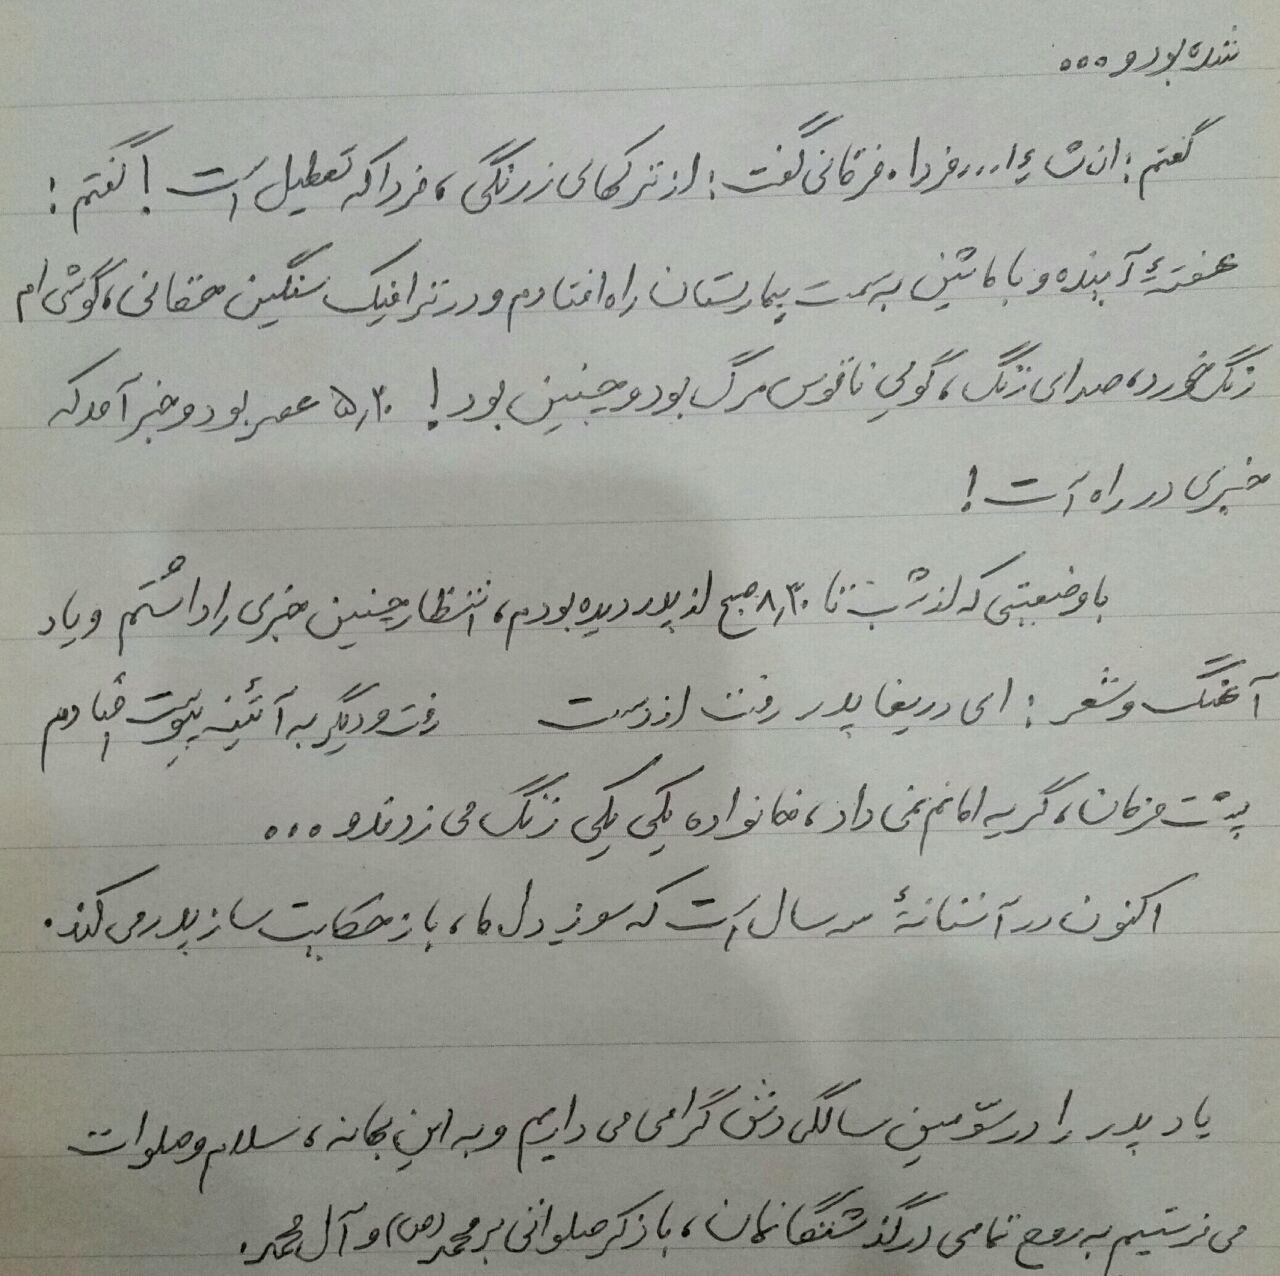 شده بود و ...
گفتم: ان شاءا... فردا. فرقانی گفت: از ترکهای زرنگی، فردا که تعطیل است! گفتم:
هفتهٔ آینده و با ماشین به سمت بیمارستان راه افتادم و در ترافیک سنگین حقانی، گوشی ام
زنگ خورد، صدای زنگ، گویی ناقوس مرگ بود و چنین بود! ۵٫۳۰ عصر بود و خبر آمد که
خبری در راه است!
با وضعیتی که از شب تا ۸٫۳۰ صبح از پدر دیده بودم، انتظار چنین خبری را داشتم و یاد
آهنگ و شعر: ای دریغا پدر رفت از دست رفت و دیگر به آئینه پیوست افتادم
پشت فرمان، گریه امانم نمی داد، خانواده یکی یکی زنگ می زدند و ...
اکنون در آستانهٔ سه سال است که سوز دل ما، باز حکایت ساز پدر می کند.
یاد پدر را در سوّمین سالگردش گرامی می داریم و به این بهانه، سلام و صلوات
می فرستیم به روح تمامی درگذشتگانمان، با ذکر صلواتی بر محمد (ص) و آل محمد.